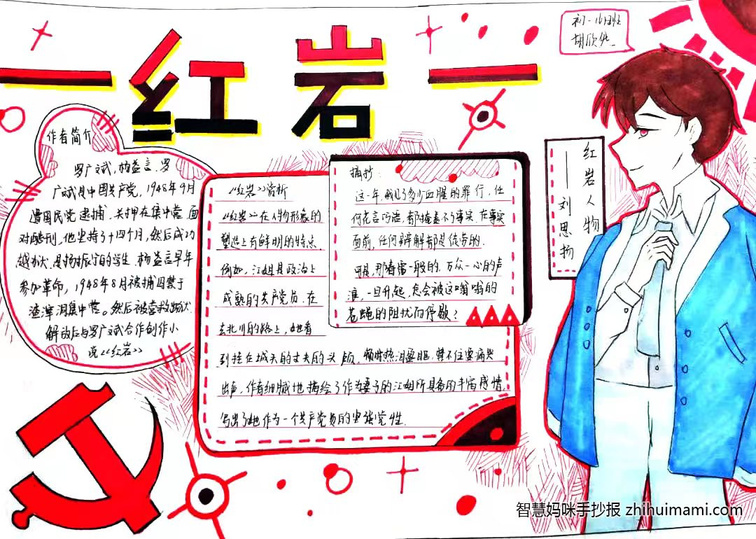 红岩
初一(6)班
胡欣然
作者简介
罗广斌,杨益言。罗
广斌是中国共产党,1948年9月
遭国民党逮捕,关押在集中营。面
对酷刑,他坚持了十四个月,然后成功
越狱
参加革命,1948年8月被捕囚禁于
渣滓洞集中营。然后被营救
解放后与罗广斌合作创作小
说《红岩》
《红岩》赏析
《红岩》在人物形象的
塑造上有鲜明的特点
例如,江姐是政治上
成熟的共产党员,在
去北川的路上,她看
到挂在城头的丈夫的头颅,顿时热泪盈眶,禁不住要痛哭
出声,作者细腻地描绘了作为妻子的江姐所具有的丰富感情,
写出了她作为一个共产党员的坚强党性
摘抄:
这一年,我见了多少血腥的罪行,任
何花言巧语,都掩盖不了事实,在事实
面前,任何辩解都是徒劳的。
可是,那春雷一般的,万众一心的声
浪,一旦升起,怎会被这嗡嗡的
苍蝇的阻扰而停歇?
红岩人物
——刘思扬
智慧妈咪手抄报 zhihuimami.com